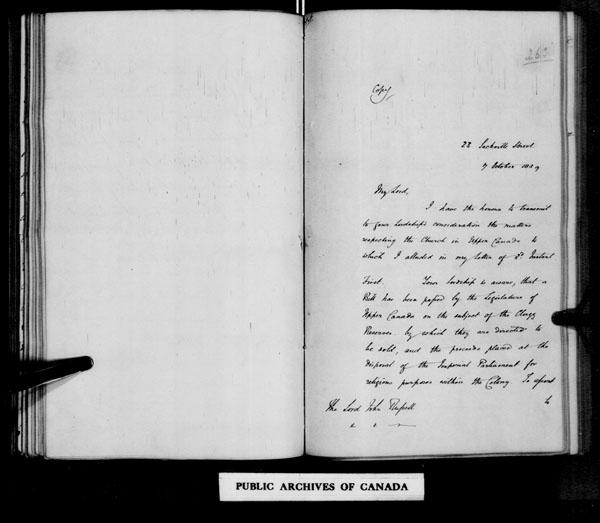 263
Copy
22 Sackville Street
7 October 1839
My Lord,
I have the honor to transmit
to your Lordship's consideration the matters
respecting the Church in Upper Canada to
which I alluded in my letter of 5th Instant
First. Your Lordship is aware, that a
Bill has been passed by the Legislature of
Upper Canada on the subject of the Clergy
Reserves by which they are directed to
be sold, and the proceeds placed at the
disposal of the Imperial Parliament for
religious purposes within the Colony. To
to
The Lord John Russell
PUBLIC ARCHIVES OF CANADA